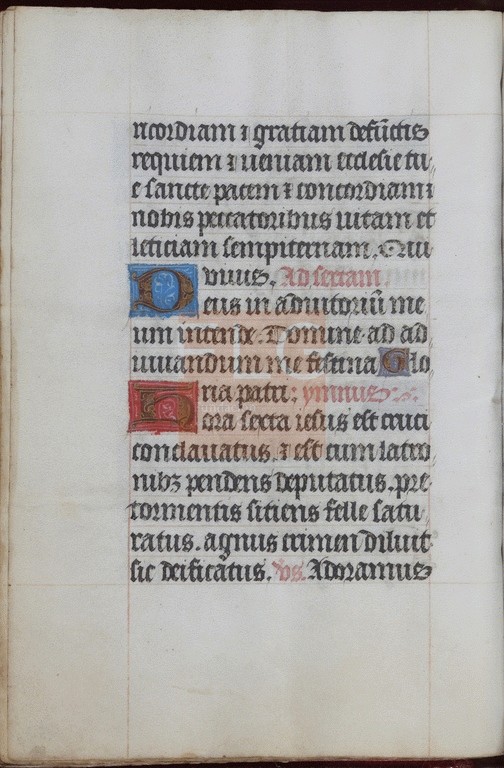 ricordiam ⁊ gratiam defūctis
requiem ⁊ ueniam ecclesie tu
e sancte pacem ⁊ concordiam ⁊
nobis peccatoribus uitam et
leticiam sempiternam. Qui
viuis. Ad sextam.
Deus in adiutoriū me
um intende. Domine ad ad
iuuandum me festina Glo
ria patri: ymnus
Hora sexta iesus est cruci
conclauatus. ⁊ est cum latro
nibꝫ pendens deputatus. pre
tormentis sitiens felle satu
ratus. agnus crimen diluit
sic deificatus. vs. Adoramus